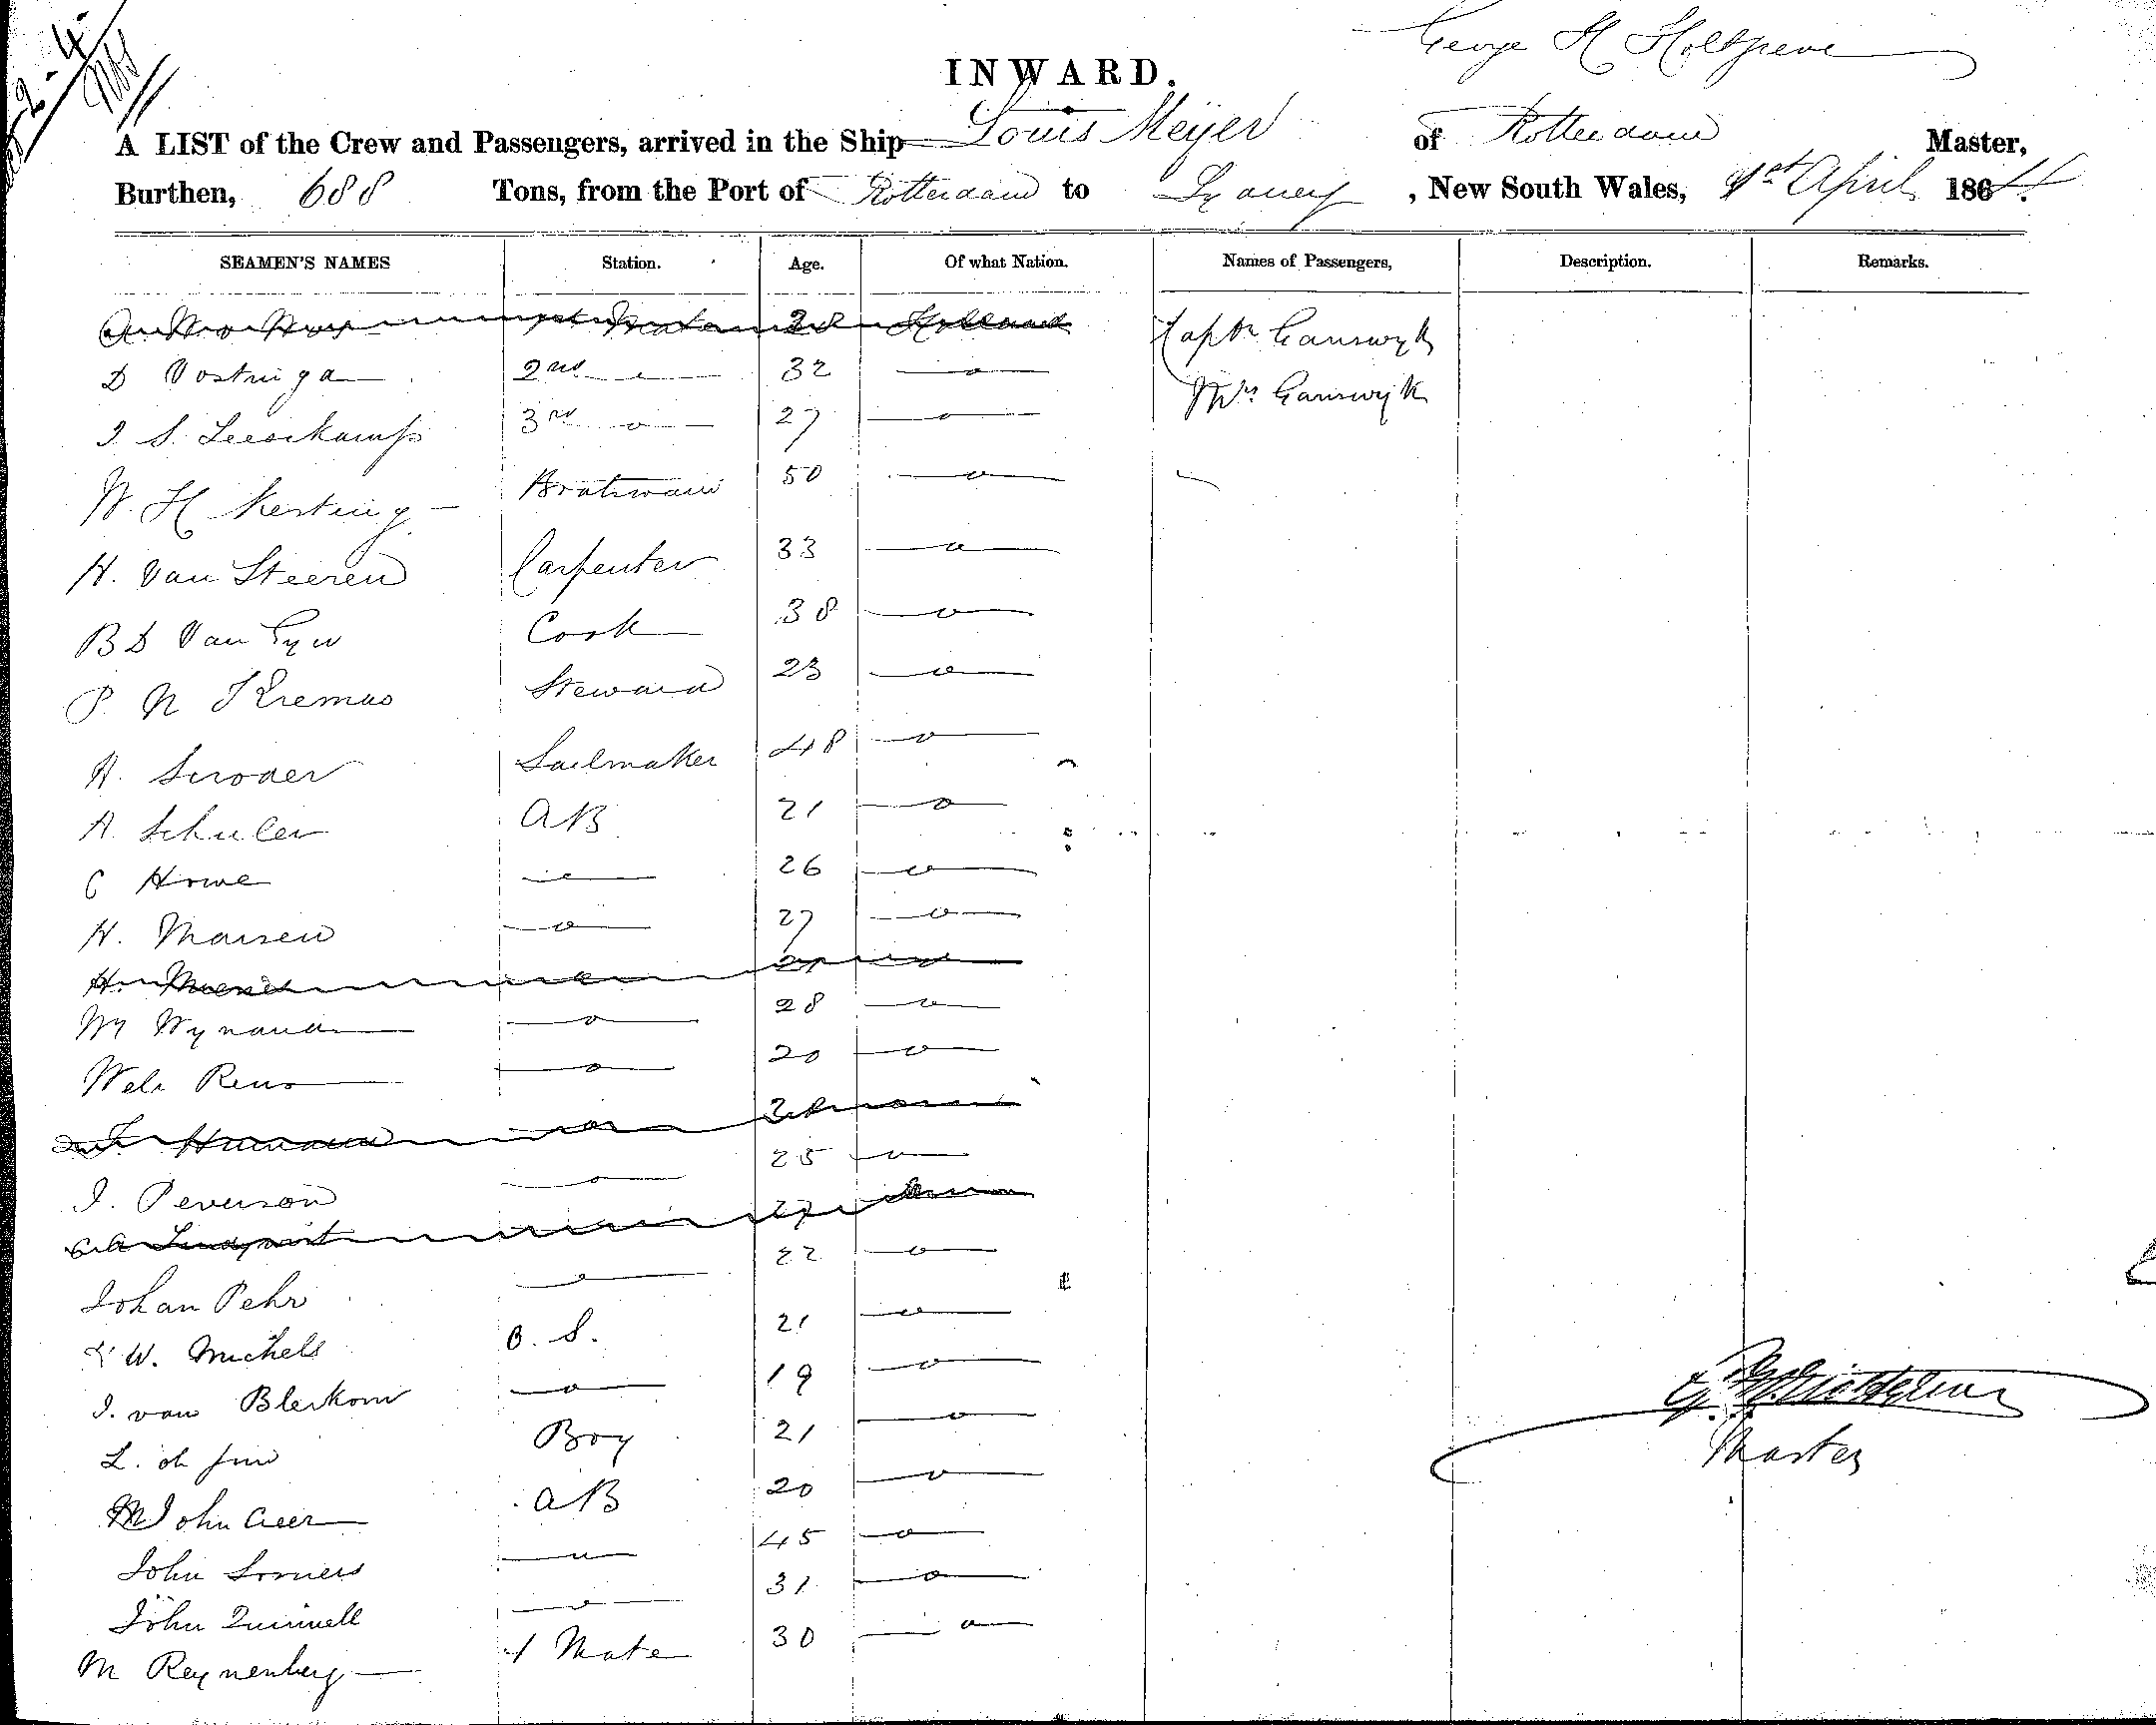 George H Holtgreve
INWARD.
A LIST of the Crew and Passengers, arrived in the Ship Louis Meijer of Rotterdam Master,
Burthen, 688 Tons, from the Port of Rotterdam to Sydney, New South Wales, 1st April 1864.
SEAMEN'S NAMES Station. Age. Of what Nation. Names of Passengers, Description. Remarks.
1st Mate 28 Holland Captn Ganswyk
D Postringa 2nd — o — 32 — o — Mrs Ganswyk
J S. Leeserkamp 3rd — o — 27 — o —
W. H Kersting Boatswain 50 — o —
H. Van Steeren Carpenter 33 — o —
B D Van Eyw Cook 38 — o —
P. N Kremas Steward 23 — o —
H. Scroder Sailmaker 48 — o —
A. Schuler AB 21 — o —
C Howe — o — 26 — o —
H. Marsen — o — 27 — o —
H.
W Wynand — o — 28 — o —
Wels Reno — o — 20 — o —
J. Peverson — o — 25 — o —
Lindquist — o — 27 — o —
Johan Pehr — o — 22 — o —
W. Michels O. S. 21 — o —
J. van Blerkom — o — 19 — o —
L. Boy 21 — o —
John Geer AB 20 — o —
John Somers — o — 45 — o —
John Quinnell — o — 31 — o —
M Reynenberg 1 Mate 30 — o —
G. H. Holtgreve
Master